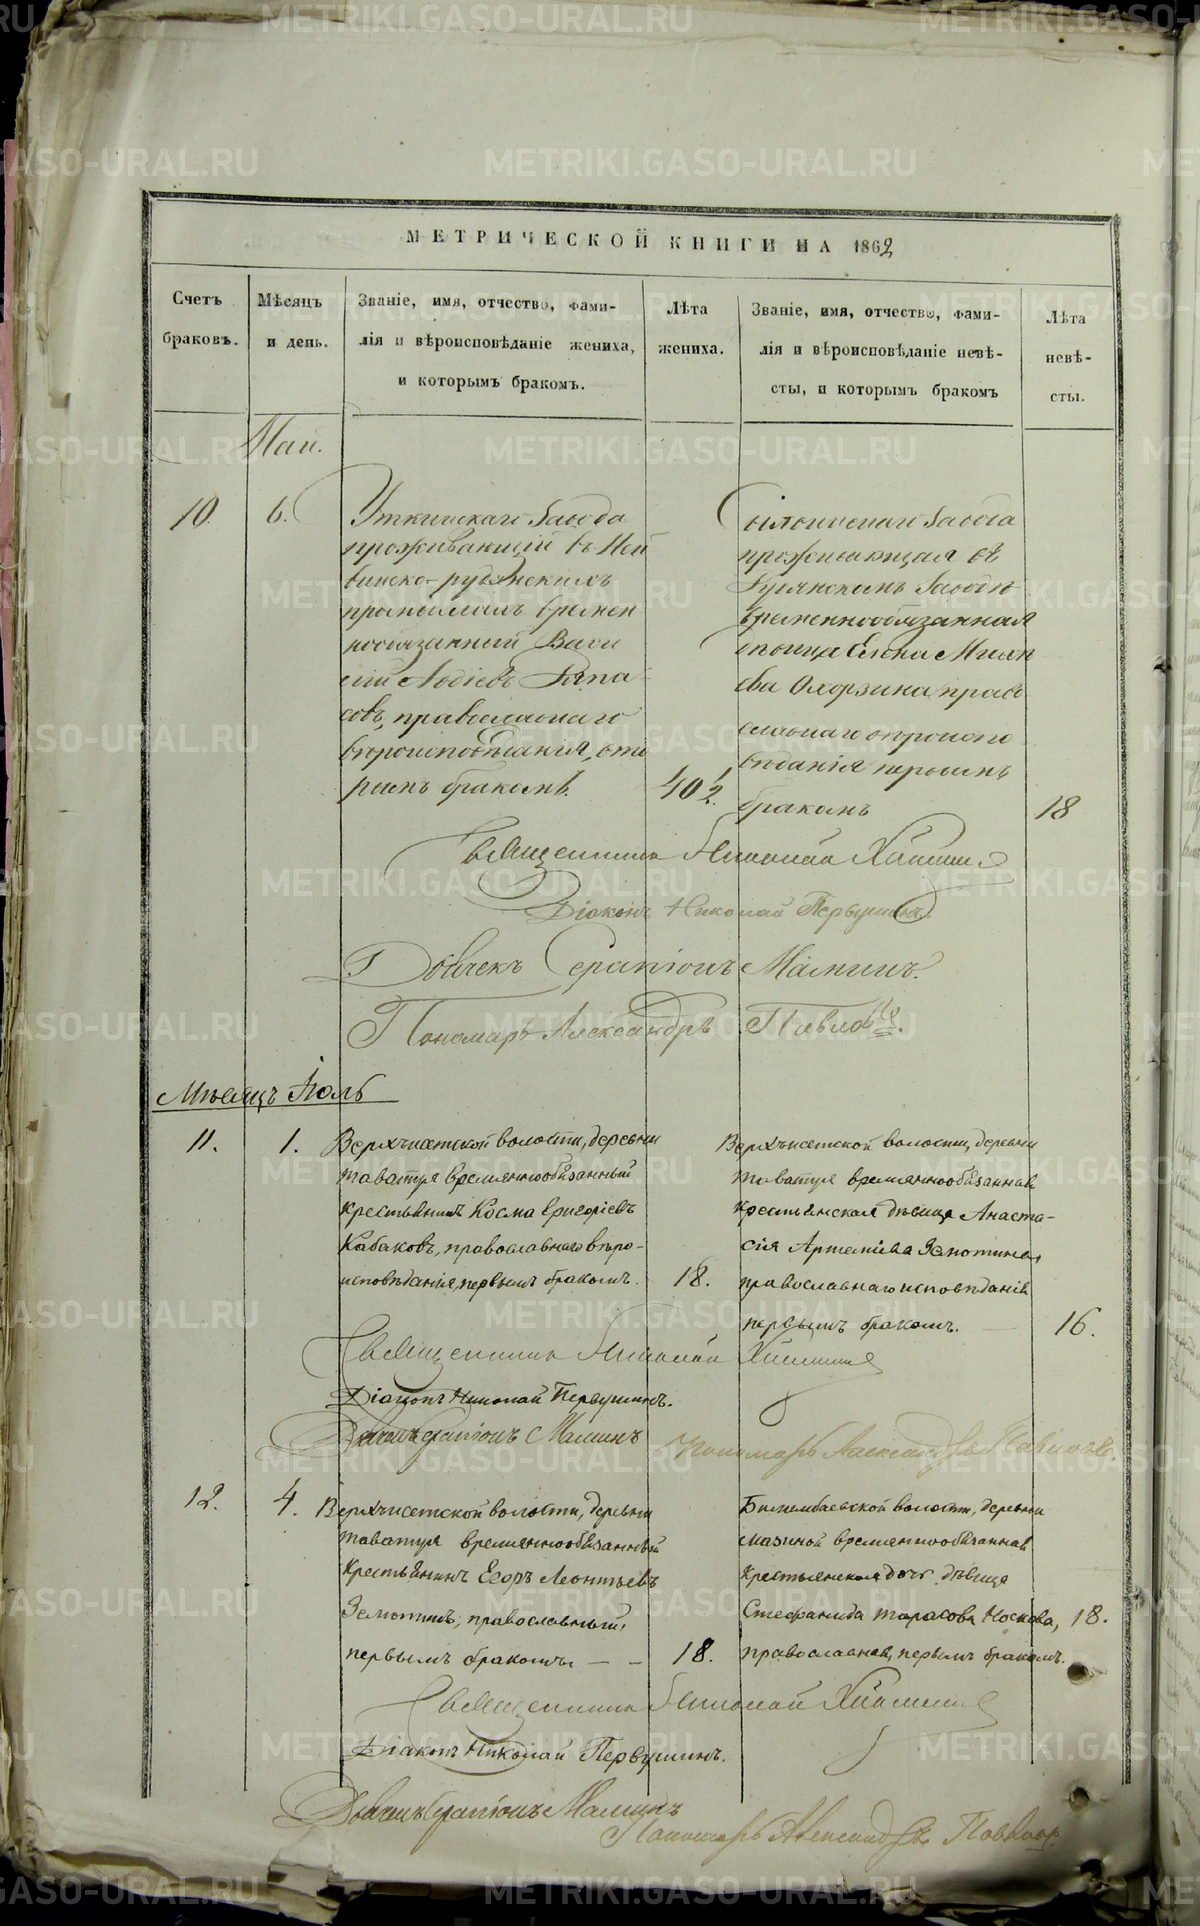 МЕТРИЧЕСКОЙ КНИГИ НА 1862
Счетъ браковъ.
Мѣсяцъ и день.
Званіе, имя, отчество, фами-
лія и вѣроисповѣданіе жениха,
и которымъ бракомъ.
Лѣта
жениха.
Званіе, имя, отчество, фами-
лія и вѣроисповѣданіе невѣ-
сты, и которымъ бракомъ
Лѣта
невѣ-
сты.
Май.
10.
6.
Уткинскаго Завода
проживающій въ Ней
винско-рудянскихъ
промыслахъ времен
нообязанный Васи
лій
совъ, православнаго
вѣроисповѣданія, вто
рымъ бракомъ.
40½.
Завода
проживающая въ
Рудянскомъ Заводѣ
временнообязанная
дѣвица Елена
ева православнаго вѣроиспо
вѣданія первымъ
бракомъ
18
Священникъ Николай
Діаконъ Николай Первушинъ.
Дьячекъ Серапіонъ Маминъ.
Пономарь Александръ Павловъ.
Мѣсяцъ Іюль
11.
1.
Верхъисетской волости, деревни
Таватуя временнообязанный
крестьянинъ Косма Григоріевъ
Кабаковъ, православнаго вѣро-
исповѣданія, первымъ бракомъ.
18.
Верхъисетской волости, деревни
Таватуя временнообязанная
крестьянская дѣвица Анаста-
сія Артеміева Замотина,
православнаго исповѣданія
первымъ бракомъ.
16.
Священникъ Николай
Діаконъ Николай Первушинъ.
Дьячекъ Серапіонъ Маминъ
Пономарь Александръ Павловъ.
12.
4.
Верхъисетской волости, деревни
Таватуя временнообязанный
крестьянинъ Егоръ Леонтьевъ
Замотинъ, православный,
первымъ бракомъ.
18.
Билимбаевской волости, деревни
Мазиной временнообязанная
крестьянская дочь дѣвица
Стефанида Тарасова Носкова,
православная, первымъ бракомъ.
18.
Священникъ Николай
Діаконъ Николай Первушинъ.
Дьячекъ Серапіонъ Маминъ
Пономарь Александръ Павловъ
METRIKI.GASO-URAL.RU